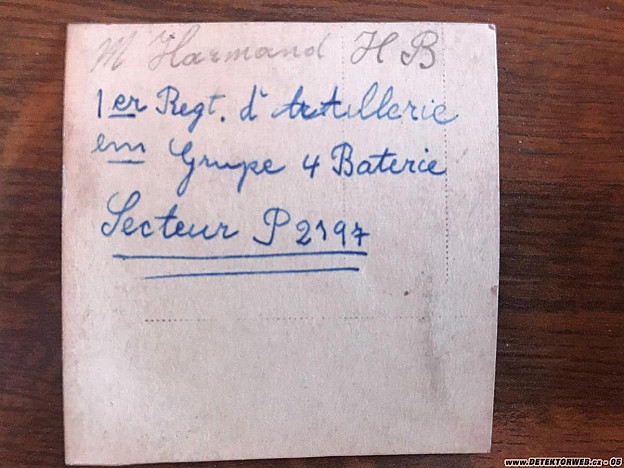 M Harmand H B
1er Regt. d'Artillerie
em Grupe 4 Baterie
Secteur P 2197
www.DETEKTORWEB.cz - 05